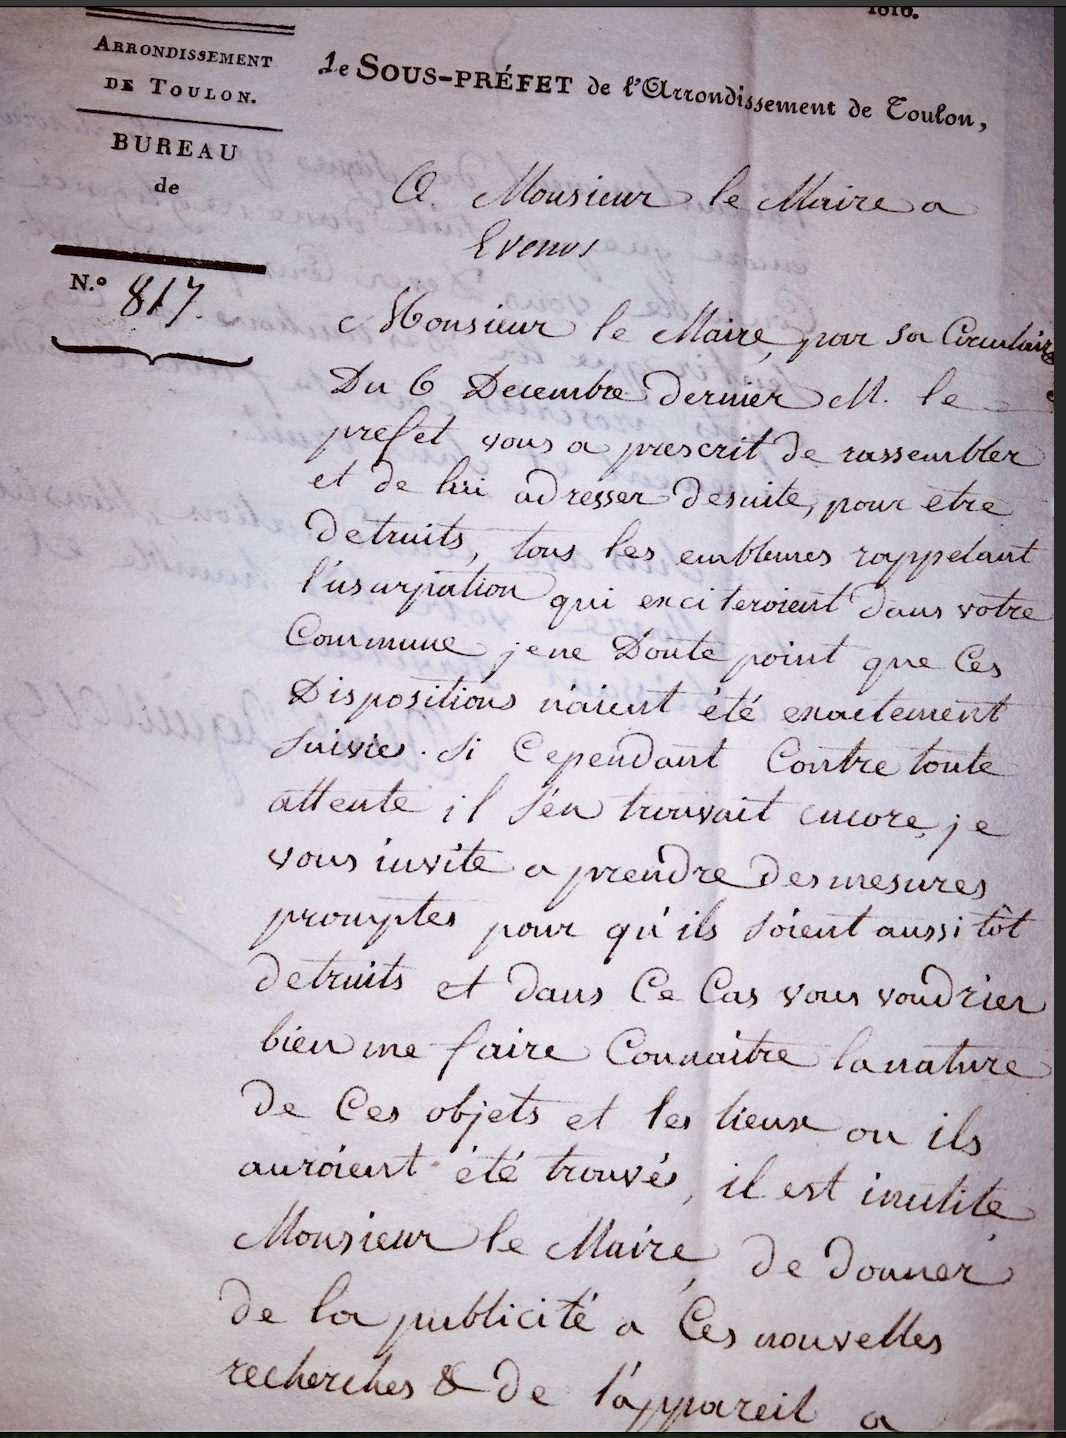 1816.
ARRONDISSEMENT
DE TOULON.
BUREAU
de
N.º 817.
Le SOUS-PRÉFET de l'Arrondissement de Toulon,
A Monsieur le Maire a
Evenos
Monsieur le Maire, par sa Circulaire
Du 6 Decembre dernier M. le
prefet vous a prescrit de rassembler
et de lui adresser desuite, pour etre
detruits, tous les emblemes rappelant
l'usurpation qui exciteroient dans votre
Commune je ne Doute point que Ces
Dispositions n'aient été exactement
suivies. Si Cependant Contre toute
attente il s'en trouvait encore, je
vous invite a prendre des mesures
promptes pour qu'ils soient aussitôt
detruits et dans Ce Cas vous voudrier
bien me faire Connaitre la nature
de Ces objets et les lieux ou ils
auroient été trouvés, il est inutile
Monsieur le Maire, de donner
de la publicité a Ces nouvelles
recherches & de l'appareil a